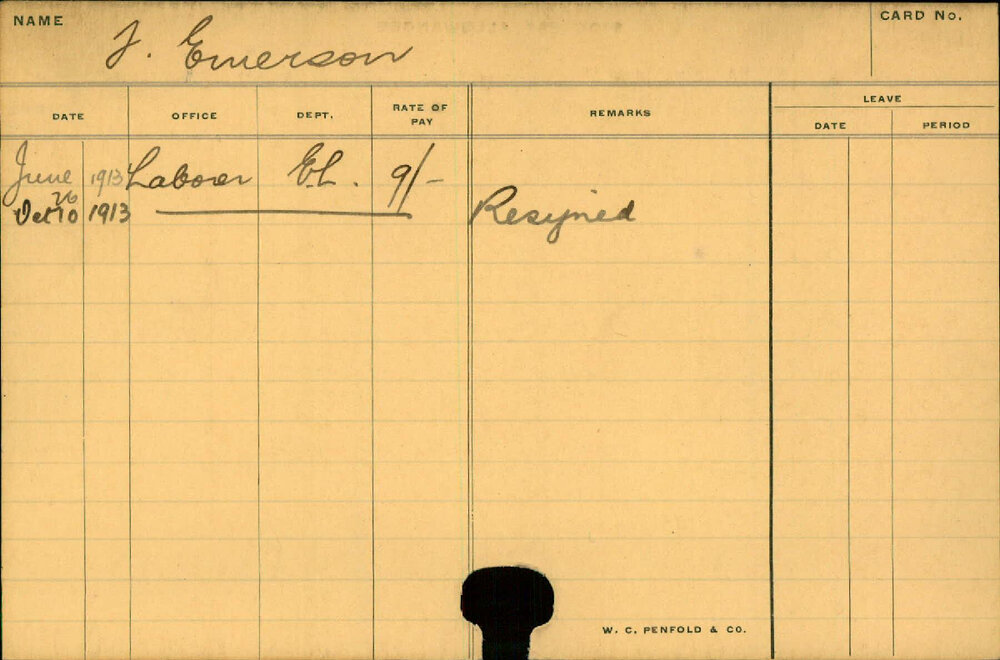 NAME
CARD No.
J. Emerson
DATE OFFICE DEPT. RATE OF PAY REMARKS LEAVE
DATE PERIOD
June 26 1913 Laborer EL. 9/-
Oct 10 1913 Resigned
W. C. PENFOLD & CO.